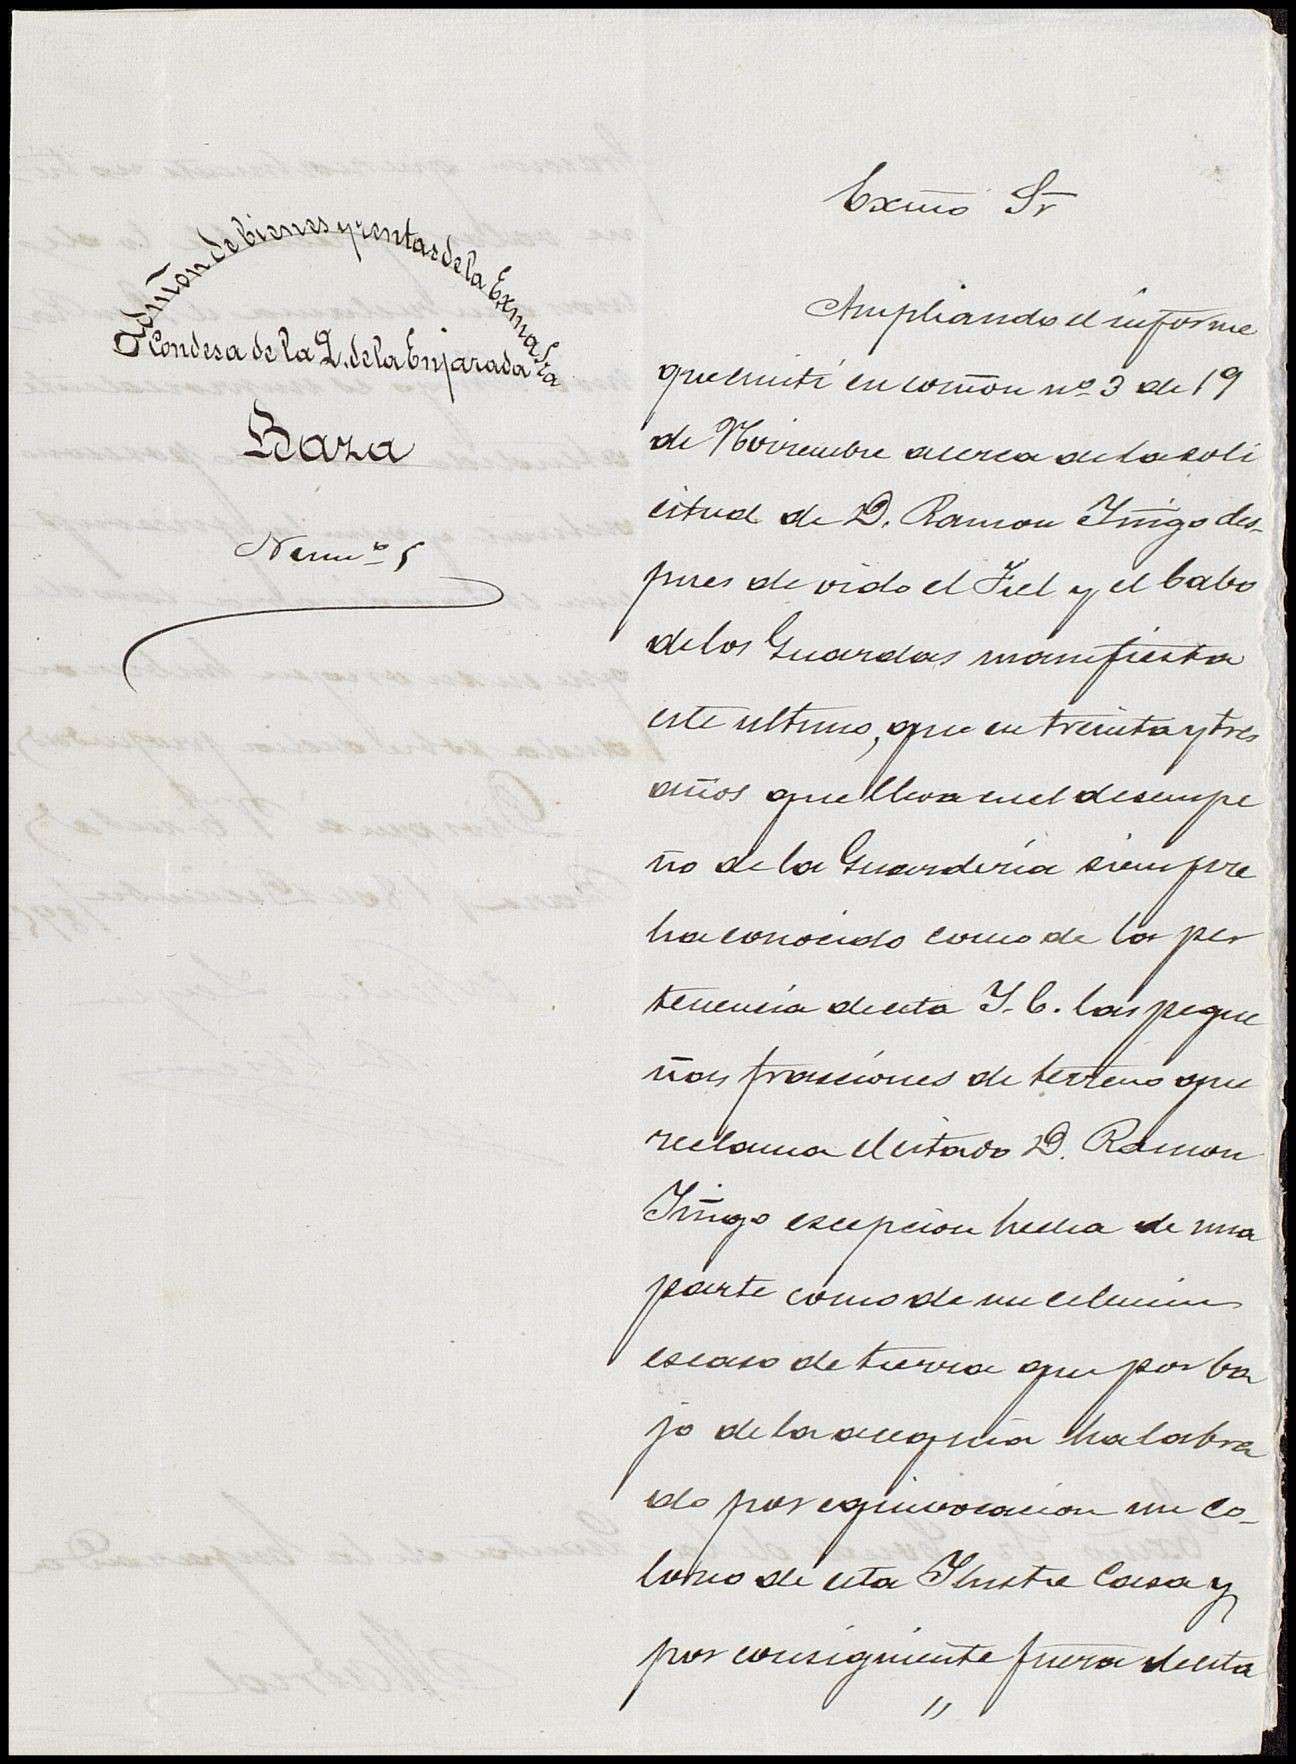 Admiñon de bienes y rentas de la Exma Sra
Condesa de la Q. de la Enjarada
Baza
Numº 5
Exmõ Sr
Ampliando el informe
que emití en comon nº 3 de 19
de Noviembre acerca de la soli
citud de D. Ramon Iñigo des-
pues de oido el Fiel y el Cabo
de los Guardas manifiesta
este ultimo, que en treinta y tres
años que lleva en el desempe
ño de la Guardería siempre
ha conocido como de la per
tenencia de esta I. C. las peque
ñas fracciones de terreno que
reclama el citado D. Ramon
Iñigo escepcion hecha de una
parte como de un celemin
escaso de tierra que por ba
jo de la acequia ha labra
do por equivocacion un co-
lono de esta Ilustre Casa y
por consiguiente fuera de esta
"